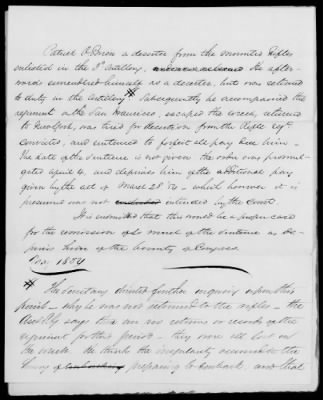 Patrick O. Brien a deserter from the mounted Rifles
enlisted in the 3d artillery, He after-
ward surrendered himself as a deserter, but was returned
to duty in the artillery # Subsequently he accompanied the
regiment on the San Francisco, escaped the wreck, returned
to New York, was tried for desertion from the Rifle Regt
convicted, and sentenced to forfeit all pay due him -
The date of the sentence is not given the order was promul-
gated April 4, and deprives him of the additional pay
given by the act of March 28 54 - which however it is
presumed was not intended by the Court
It is submitted that this would be a proper case
for the remission of so much of the sentence as de-
prives him of the bounty of Congress
1854
# The Secretary directed further inquiry upon this
point - why he was not returned to the rifles - the
says there are no returns or records of the
regiment for this period - they were all lost on
the wreck He thinks the irregularity occurred in the
hurry of preparing to embark and that